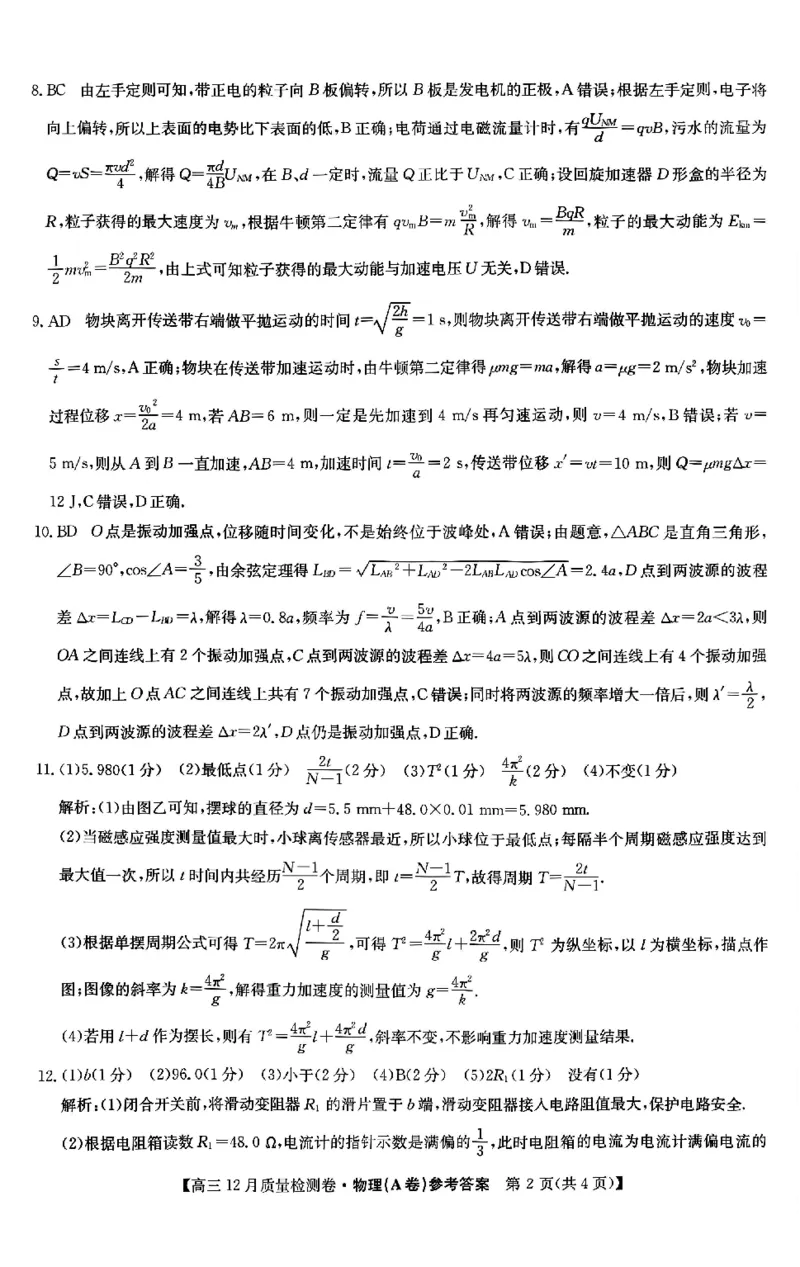 8. BC　由左手定则可知,带正电的粒子向 B 板偏转,所以 B 板是发电机的正极,A 错误;根据左手定则,电子将
向上偏转,所以上表面的电势比下表面的低,B 正确;电荷通过电磁流量计时,有$\frac{qU_{NM}}{d}$=qvB,污水的流量为
Q=vS=$\frac{πvd^2}{4}$,解得 Q=$\frac{πd}{4B}U_{NM}$,在 B、d 一定时,流量 Q 正比于 $U_{NM}$,C 正确;设回旋加速器 D 形盒的半径为
R,粒子获得的最大速度为 $v_m$,根据牛顿第二定律有 $qv_mB=m\frac{v_m^2}{R}$,解得 $v_m=\frac{BqR}{m}$,粒子的最大动能为 $E_{km}$=
$\frac{1}{2}mv_m^2=\frac{B^2q^2R^2}{2m}$,由上式可知粒子获得的最大动能与加速电压 U 无关,D 错误.
9. AD　物块离开传送带右端做平抛运动的时间 t=$\sqrt{\frac{2h}{g}}$=1 s,则物块离开传送带右端做平抛运动的速度 $v_0$=
$\frac{s}{t}$=4 m/s,A 正确;物块在传送带加速运动时,由牛顿第二定律得 μmg=ma,解得 a=μg=2 m/s²,物块加速
过程位移 x=$\frac{v_0^2}{2a}$=4 m,若 AB=6 m,则一定是先加速到 4 m/s 再匀速运动,则 v=4 m/s,B 错误;若 v=
5 m/s,则从 A 到 B 一直加速,AB=4 m,加速时间 t=$\frac{v_0}{a}$=2 s,传送带位移 x′=vt=10 m,则 Q=μmgΔx=
12 J,C 错误,D 正确.
10. BD　O 点是振动加强点,位移随时间变化,不是始终位于波峰处,A 错误;由题意,△ABC 是直角三角形,
∠B=90°,cos∠A=$\frac{3}{5}$,由余弦定理得 $L_{BD}=\sqrt{L_{AB}^2+L_{AD}^2-2L_{AB}L_{AD}\cos∠A}$=2.4a,D 点到两波源的波程
差 Δx=$L_{CD}-L_{BD}$=λ,解得 λ=0.8a,频率为 f=$\frac{v}{λ}=\frac{5v}{4a}$,B 正确;A 点到两波源的波程差 Δx=2a<3λ,则
OA 之间连线上有 2 个振动加强点,C 点到两波源的波程差 Δx=4a=5λ,则 CO 之间连线上有 4 个振动加强
点,故加上 O 点 AC 之间连线上共有 7 个振动加强点,C 错误;同时将两波源的频率增大一倍后,则 λ′=$\frac{λ}{2}$,
D 点到两波源的波程差 Δx=2λ′,D 点仍是振动加强点,D 正确.
11. (1)5.980(1 分)　(2)最低点(1 分)　$\frac{2t}{N-1}$(2 分)　(3)T²(1 分)　$\frac{4π^2}{k}$(2 分)　(4)不变(1 分)
解析:(1)由图乙可知,摆球的直径为 d=5.5 mm+48.0×0.01 mm=5.980 mm.
(2)当磁感应强度测量值最大时,小球离传感器最近,所以小球位于最低点;每隔半个周期磁感应强度达到
最大值一次,所以 t 时间内共经历$\frac{N-1}{2}$个周期,即 t=$\frac{N-1}{2}$T,故得周期 T=$\frac{2t}{N-1}$.
(3)根据单摆周期公式可得 T=2π$\sqrt{\frac{l+\frac{d}{2}}{g}}$,可得 T²=$\frac{4π^2}{g}l+\frac{2π^2d}{g}$,则 T² 为纵坐标,以 l 为横坐标,描点作
图;图像的斜率为 k=$\frac{4π^2}{g}$,解得重力加速度的测量值为 g=$\frac{4π^2}{k}$.
(4)若用 l+d 作为摆长,则有 T²=$\frac{4π^2}{g}l+\frac{4π^2d}{g}$,斜率不变,不影响重力加速度测量结果.
12. (1)b(1 分)　(2)96.0(1 分)　(3)小于(2 分)　(4)B(2 分)　(5)2R₁(1 分)　没有(1 分)
解析:(1)闭合开关前,将滑动变阻器 R₁ 的滑片置于 b 端,滑动变阻器接入电路阻值最大,保护电路安全.
(2)根据电阻箱读数 R₁=48.0 Ω,电流计的指针示数是满偏的$\frac{1}{3}$,此时电阻箱的电流为电流计满偏电流的
【高三 12 月质量检测卷·物理(A 卷)参考答案　第 2 页(共 4 页)】